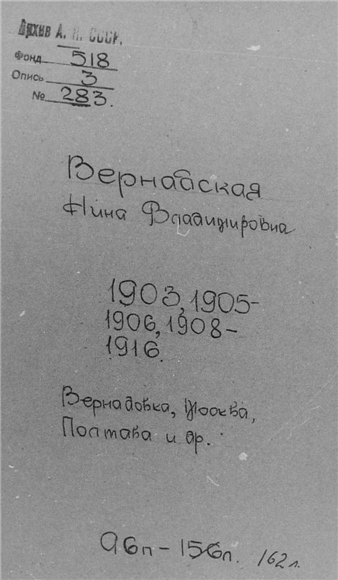 Архив А. Н. СССР.
Фонд 518
Опись 3
№ 283.
Вернадская
Нина Владимировна
1903, 1905-
1906, 1908-
1916.
Вернадовка, Москва,
Полтава и др.
96п - 156п. 162л.